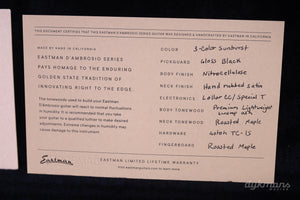 THIS DOCUMENT CERTIFIES THAT THIS EASTMAN D'AMBROSIO SERIES GUITAR WAS DESIGNED & HANDCRAFTED BY EASTMAN IN CALIFORNIA
MADE BY HAND IN CALIFORNIA
EASTMAN D'AMBROSIO SERIES
PAYS HOMAGE TO THE ENDURING
GOLDEN STATE TRADITION OF
INNOVATING RIGHT TO THE EDGE.
The tonewoods used to build your Eastman
D'Ambrosio guitar will react to normal fluctuations
in humidity. It is recommended that you take
your guitar to a qualified luthier to make desired
adjustments. Extreme changes in humidity may
cause damage to this instrument.
COLOR 3-Color Sunburst
PICKGUARD Gloss Black
BODY FINISH Nitrocellulose
NECK FINISH Hand rubbed satin
ELECTRONICS Lollar CC/ Special T
BODY TONEWOOD Premium Lightweight
swamp ash
NECK TONEWOOD Roasted Maple
HARDWARE Gotoh TC-1S
FINGERBOARD Roasted Maple
Eastman
EASTMAN LIMITED LIFETIME WARRANTY
Visit eastmanguitars.com to learn more.
dijkmans